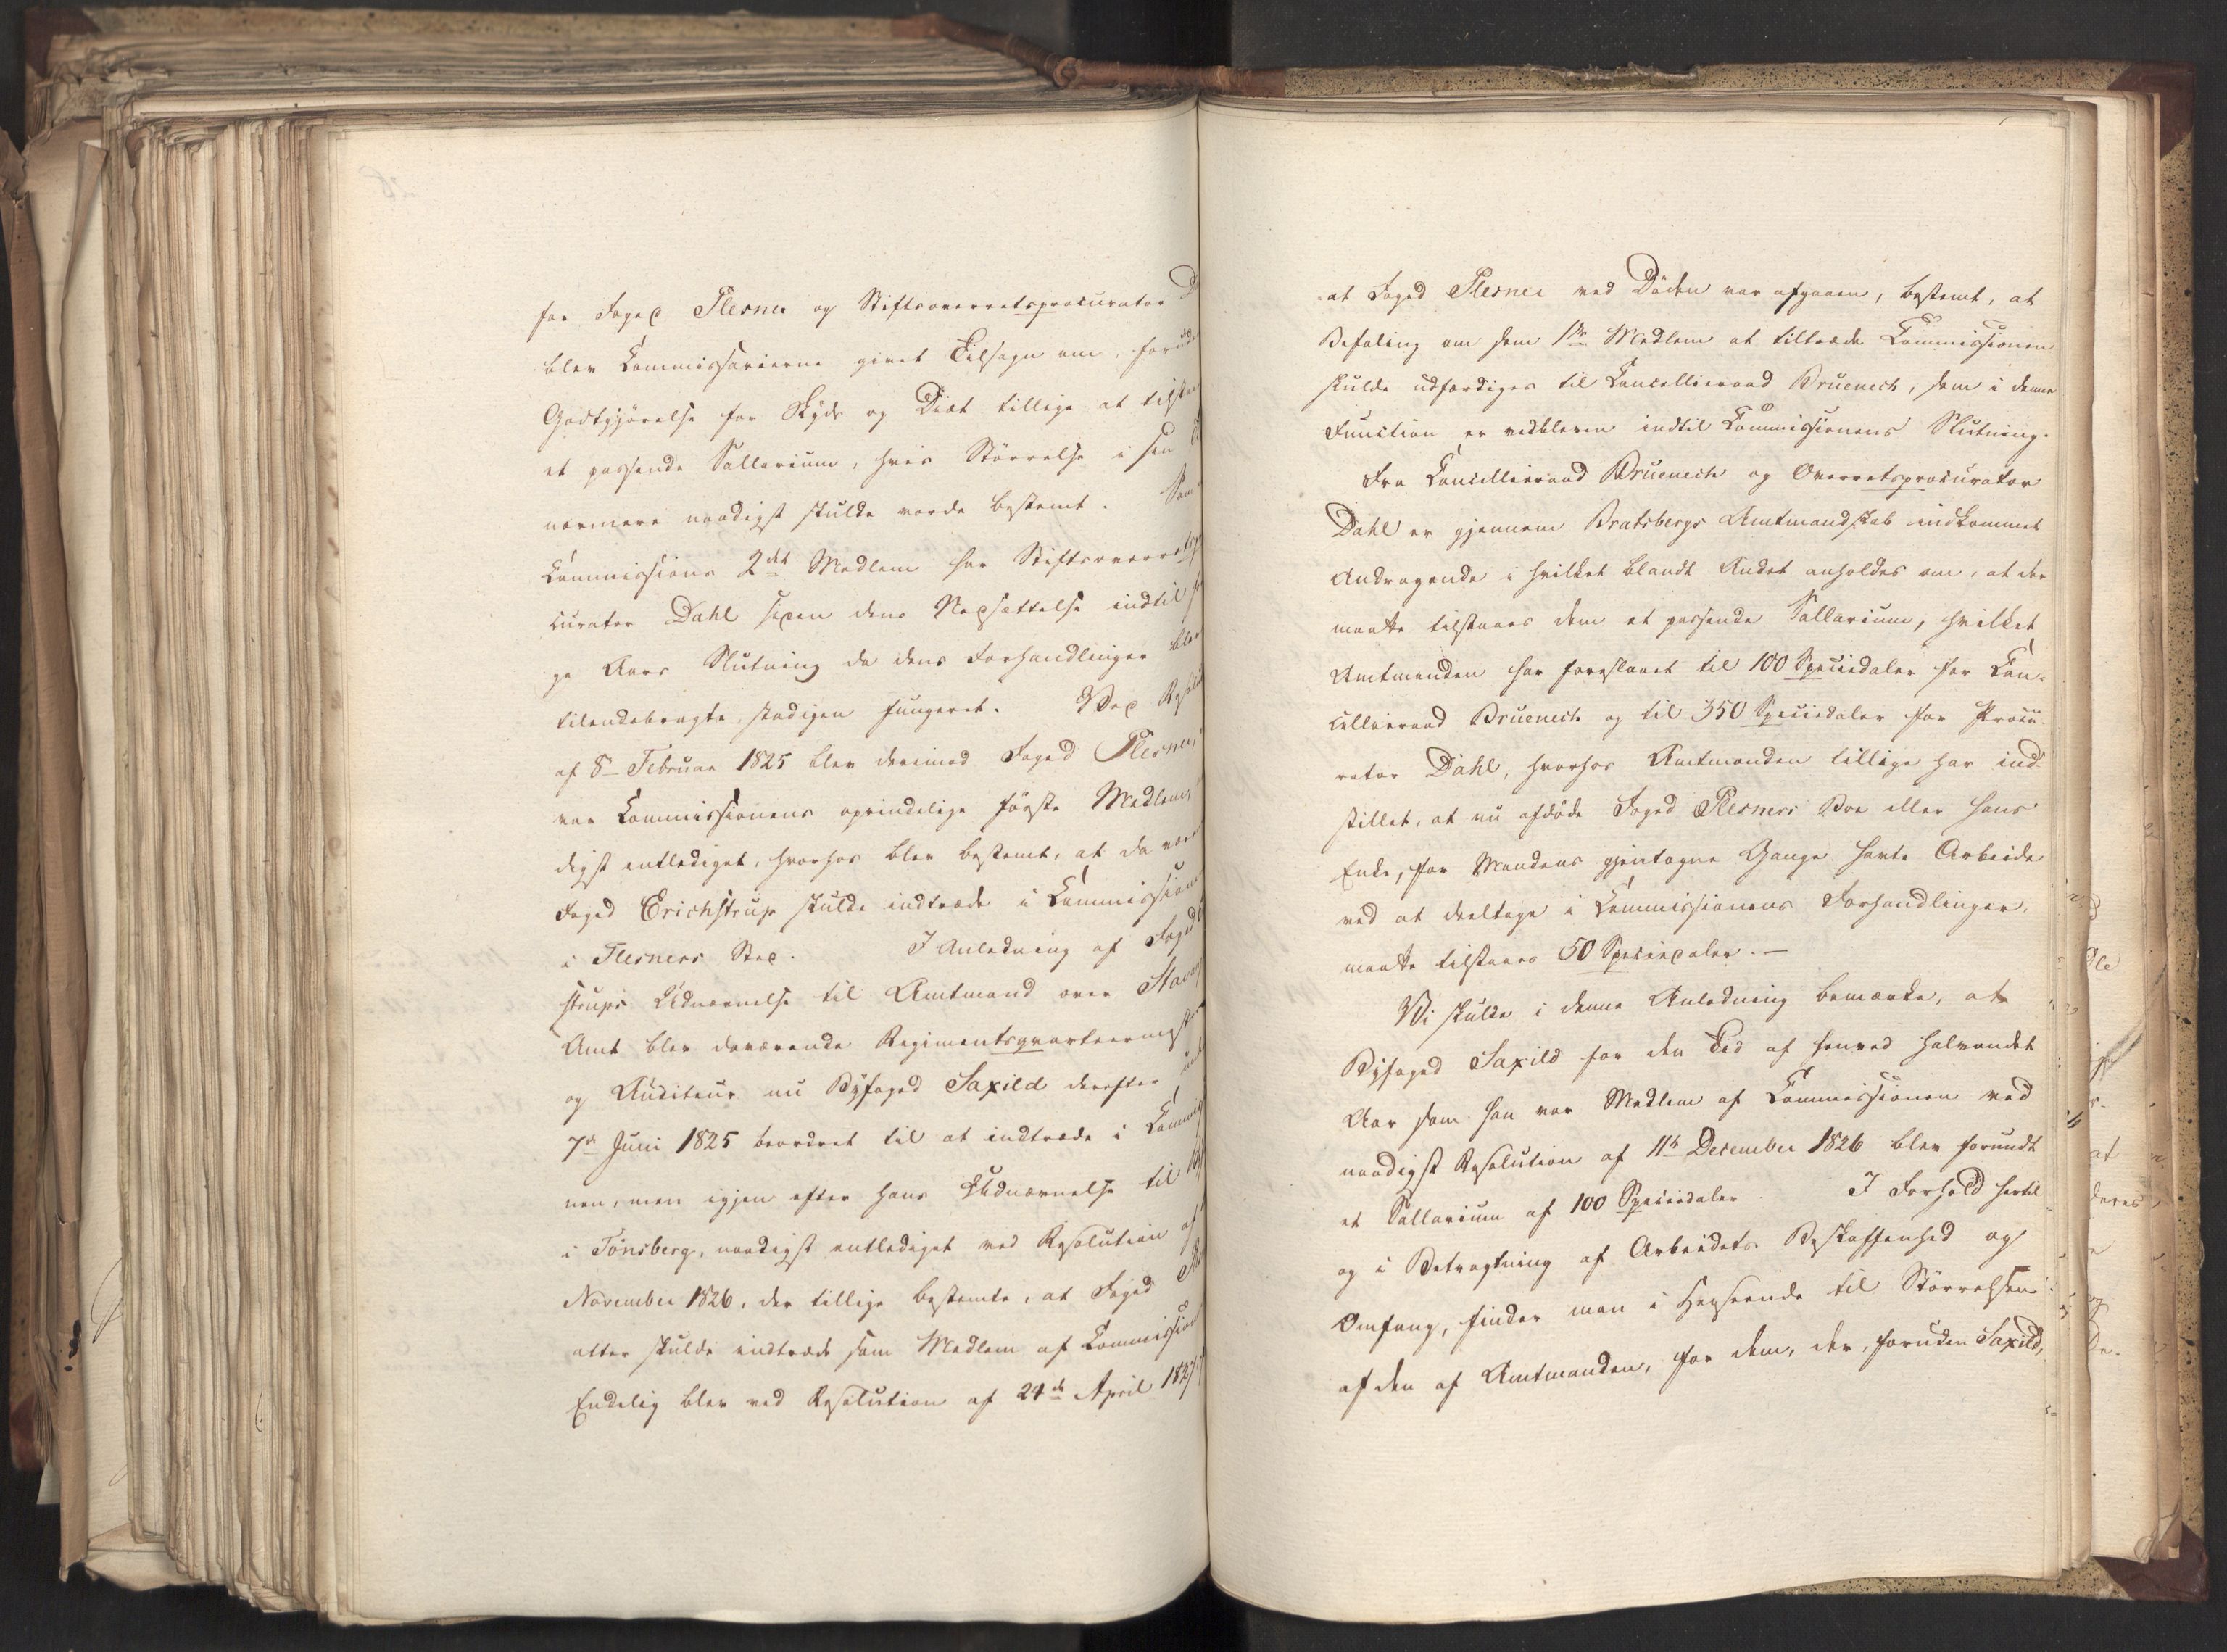 for Foged Plesner og Stiftsoverretsprocurator D
blev Commissarierne givet Tilsagn om, forud
Godtgjörelse for Skyds og Diæt tillige at tilst
et passende Sallarium, hvis Störrelse i sin
nærmere naadigst skulde vorde bestemt. Som
Commissions 2det Medlem har Stiftsoverretsp
curator Dahl siden dens Nedsættelse indtil f
ge Aars Slutning da dens Forhandlinger blev
tilendebragte stadigen fungeret. Ved Resol
af 8de Februar 1825 blev derimod Foged Plesner,
var Commissionens oprindelige förste Medlem,
digst entlediget, hvorhos blev bestemt, at da vær
Foged Erichstrup skulde indtræde i Commission
i Plesners Sted. I Anledning af Foged
strups Udnævnelse til Amtmand over Stavang
Amt blev daværende Regimentsqvarteermest
og Auditeur nu Byfoged Saxild derefter und
7de Juni 1825 beordret til at indtræde i Commis
nen, men igjen efter hans Udnævnelse til By
i Tönsberg, naadigst entlediget ved Resolution af
November 1826, der tillige bestemte, at Foged Ple
atter skulde indtræde som Medlem af Commission
Endelig blev ved Resolution af 24de April 1827
at Foged Plesner ved Döden var afgaaen, bestemt, at
Befaling om som 1ste Medlem at tiltræde Commissionen
skulde udfærdiges til Cancelliraad Bruenech, som i denne
Function er vedbleven indtil Commissionens Slutning.
Fra Cancelliraad Bruenech og Overretsprocurator
Dahl er gjennem Bratsbergs Amtmandskab indkommet
Andragende i hvilket blandt Andet anholdes om, at der
maatte tilstaaes dem et passende Sallarium, hvilket
Amtmanden har foreslaaet til 100 Speciedaler for Can-
celliraad Bruenech og til 350 Speciedaler for Procu-
rator Dahl, hvorhos Amtmanden tillige har ind-
stillet, at nu afdöde Foged Plesners Boe eller hans
Enke, for Mandens gjentagne Gange havte Arbeide
ved at deeltage i Commissionens Forhandlinger,
maatte tilstaaes 50 Speciedaler.—
Vi skulde i denne Anledning bemærke, at
Byfoged Saxild for den Tid af henved halvandet
Aar som han var Medlem af Commissionen ved
naadigst Resolution af 11te December 1826 blev forundt
et Sallarium af 100 Speciedaler. I Forhold hertil
og i Betragtning af Arbeidets Beskaffenhed og
Omfang, finder man i Henseende til Störrelsen
af den af Amtmanden, for dem, der, foruden Saxild,